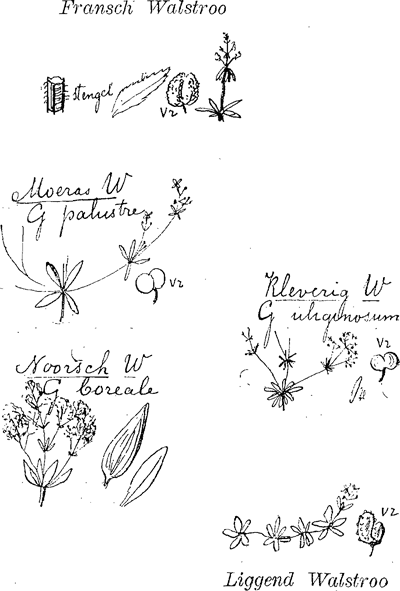 Fransch Walstroo
stengel
V2
Moeras W
G palustre
V2
Kleverig W
G uliginosum
V2
Noorsch W
G boreale
V2
Liggend Walstroo